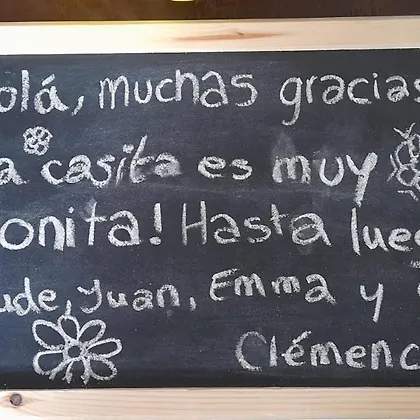 olá, muchas gracias
a casita es muy
onita! Hasta lue
ude, Juan, Emma y
Clémenc